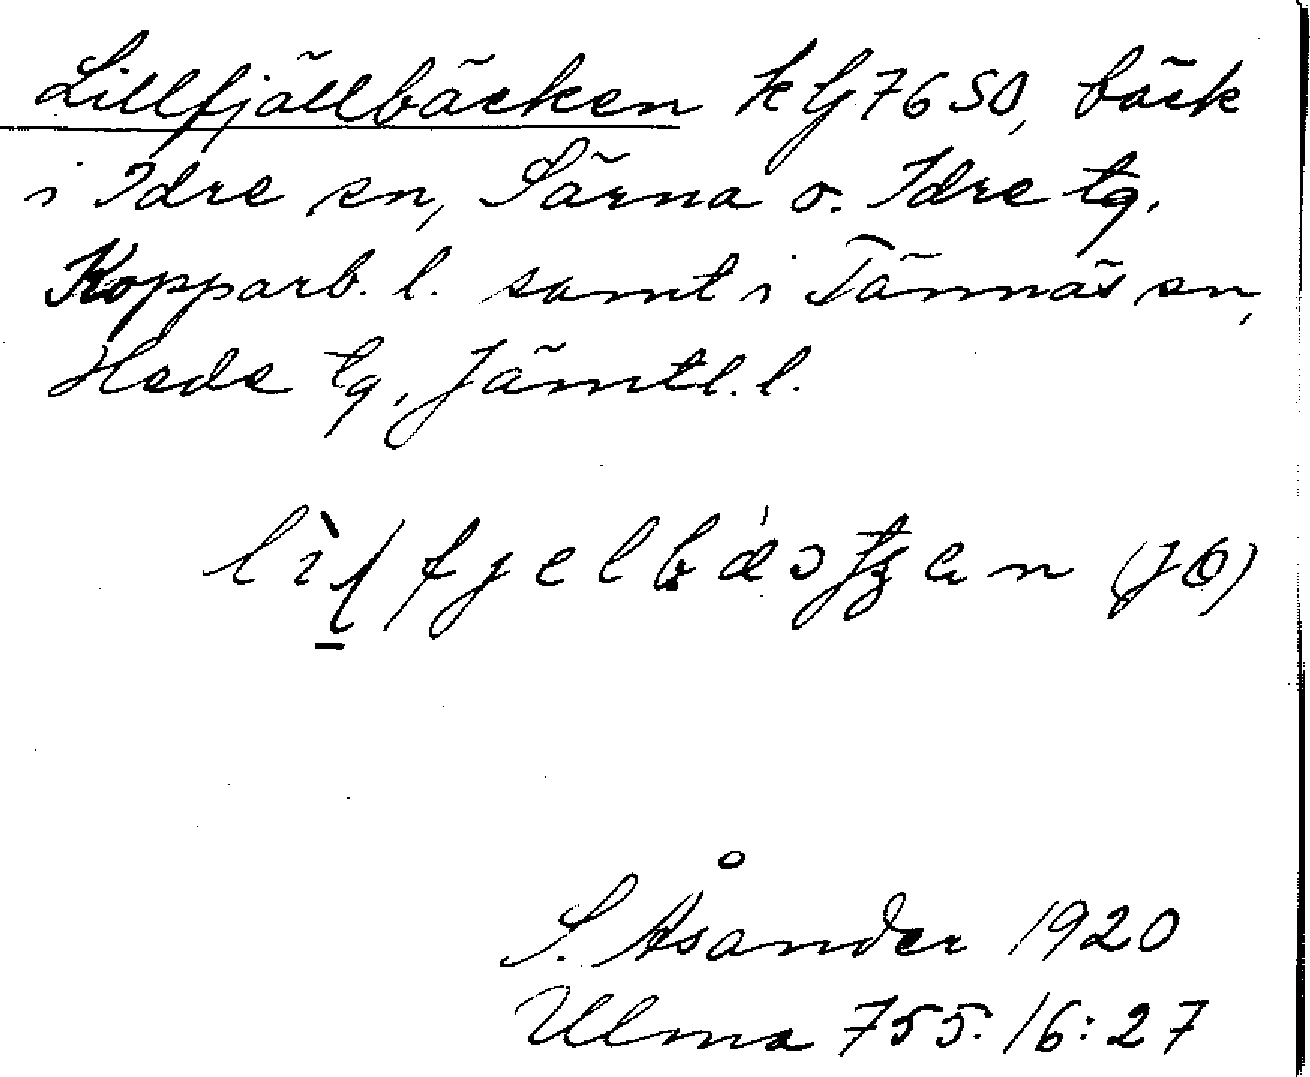 Lillfjällbäcken k G7650, bäck
i Idre sn, Särna o. Idre tg.
Kopparb. l. samt i Tännäs sn,
Hede tg, Jämtl. l.
(JÖ)
S. Åsander 1920
Ulma 755. 16:27